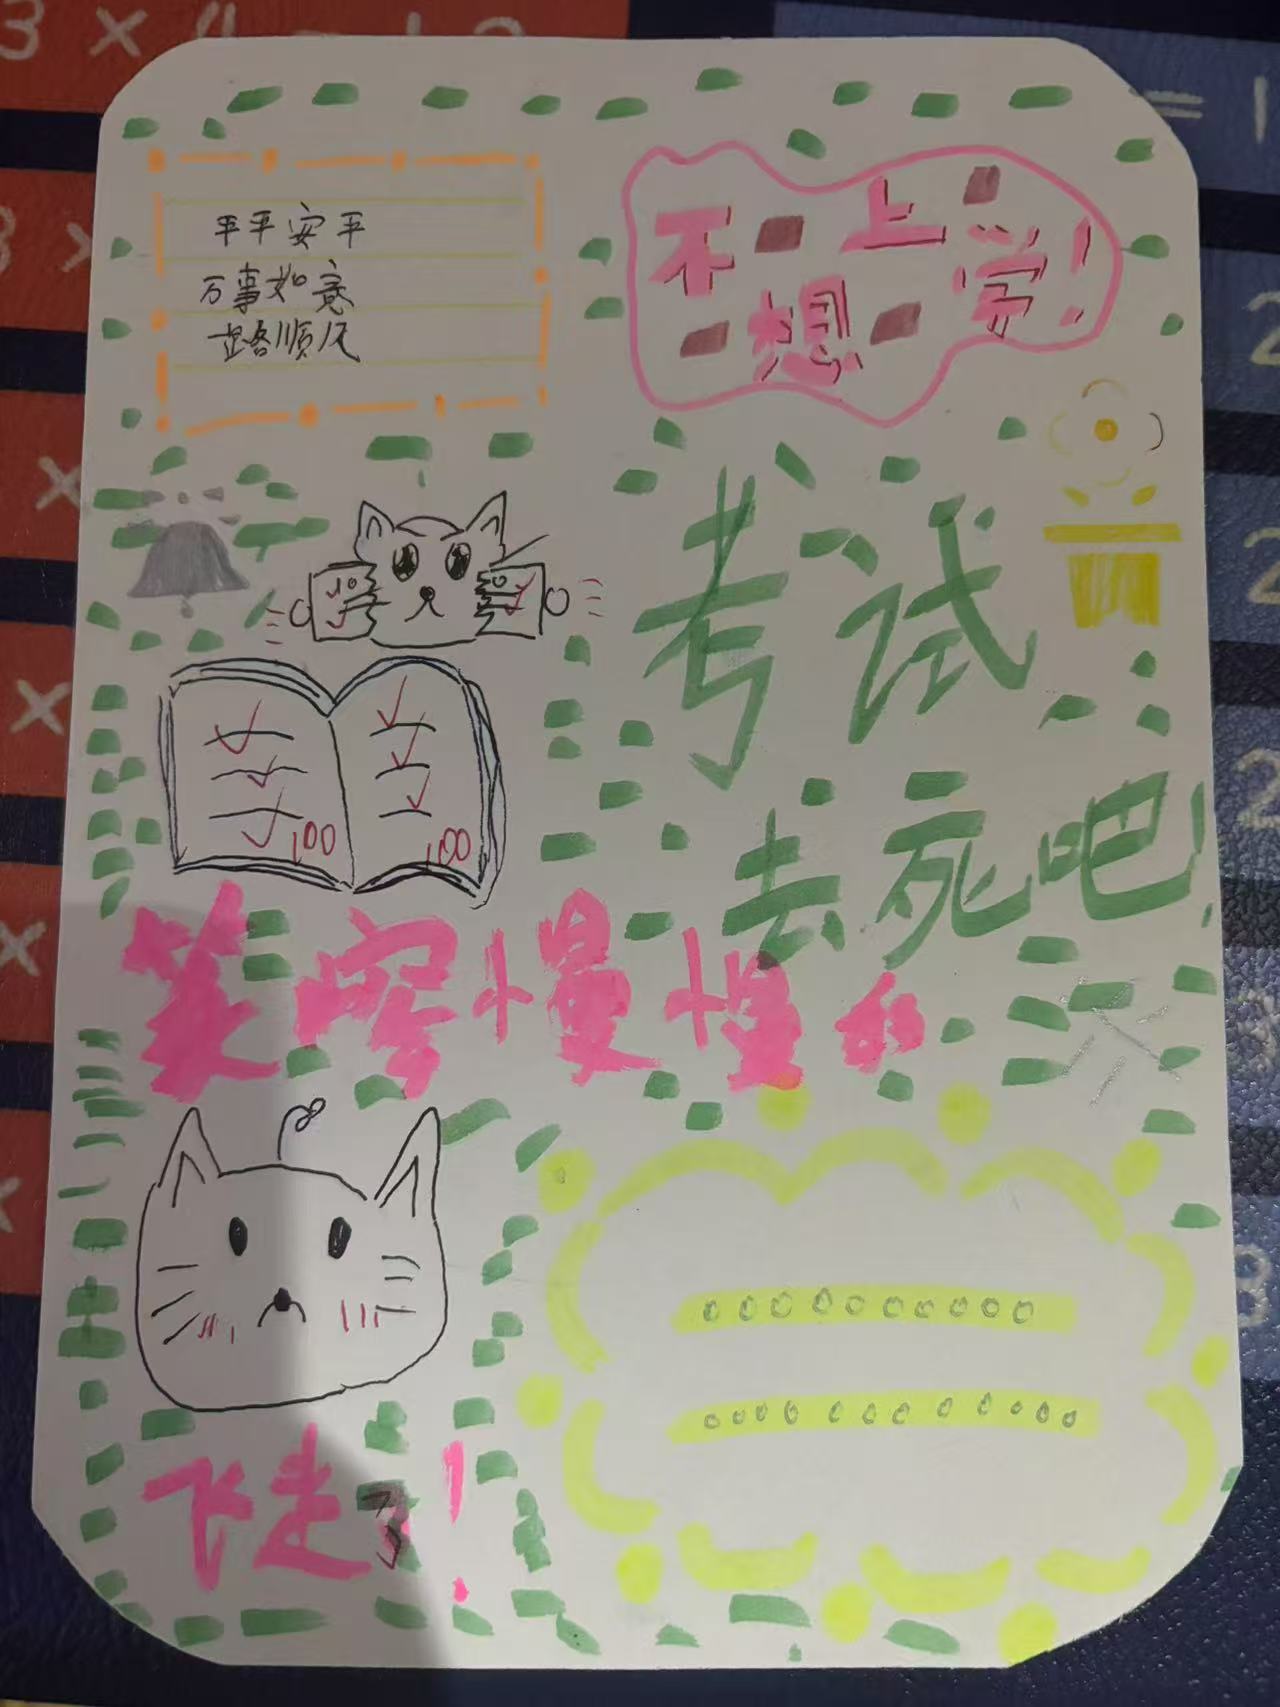 平平安平
万事如意
路顺风
不想上学!
考试
去死吧!
100
100
慢慢的
飞走了!
3 × 4 = 12